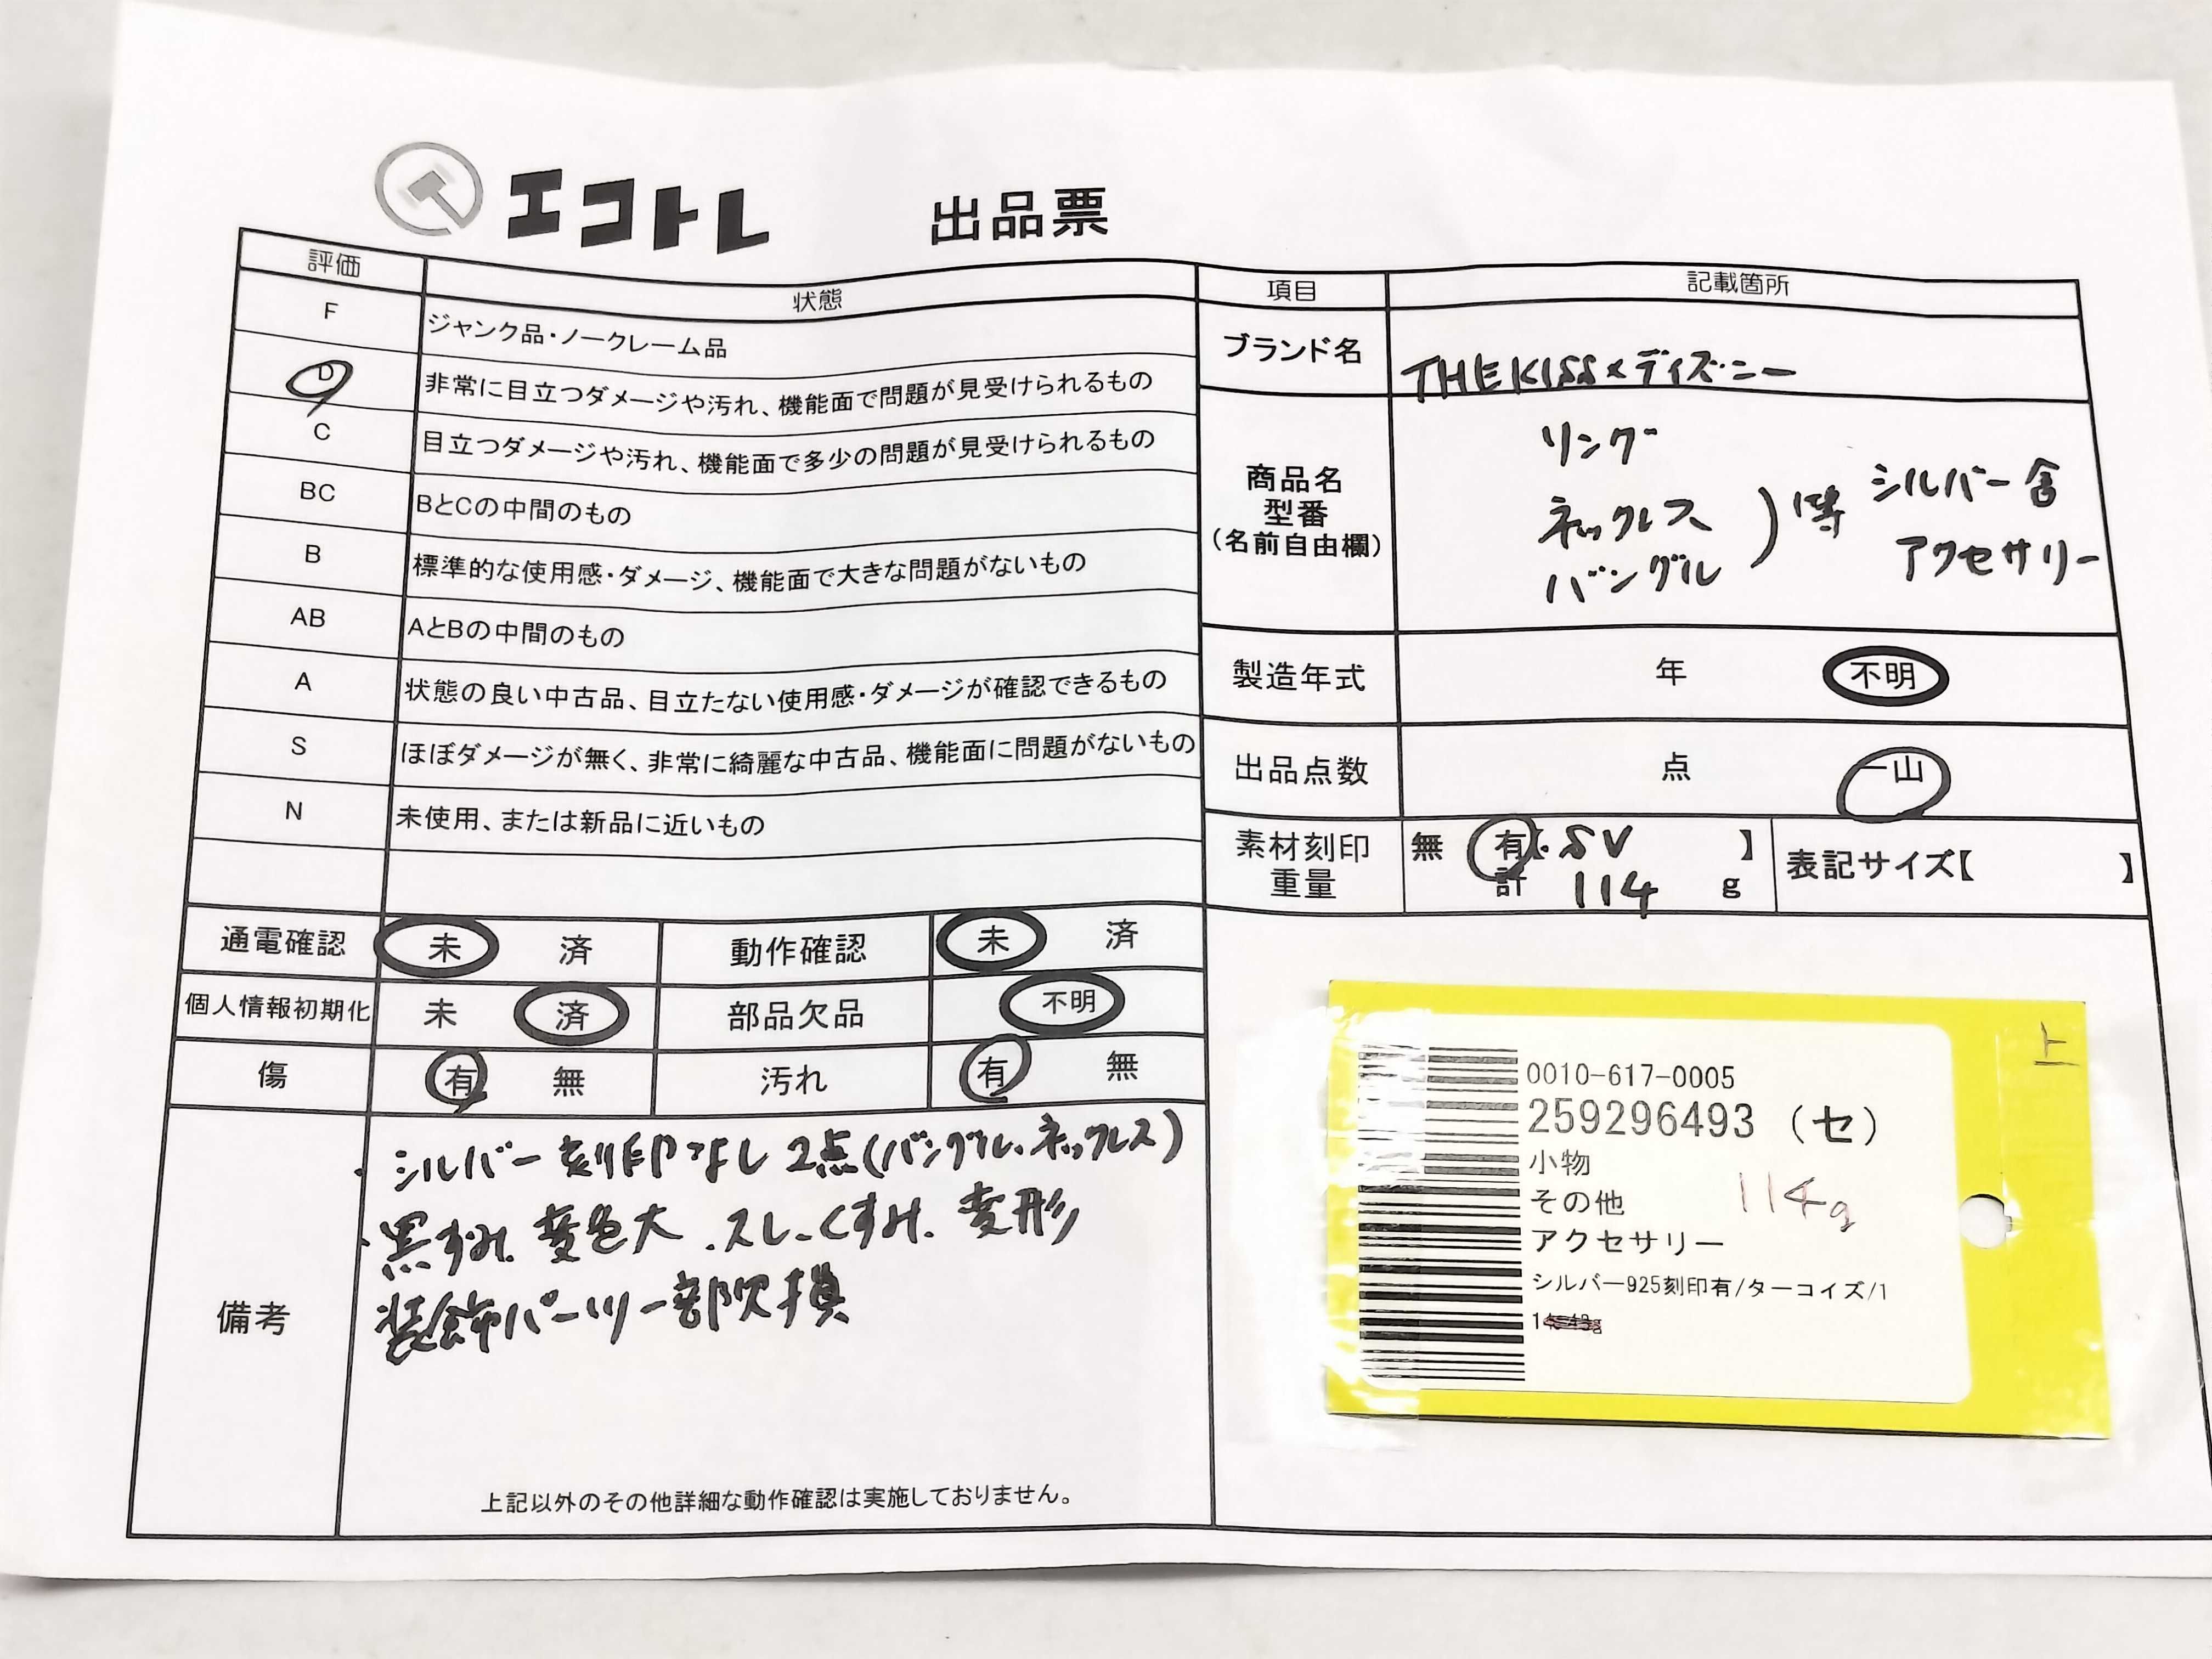 エコトレ 出品票
評価 状態
F ジャンク品・ノークレーム品
D 非常に目立つダメージや汚れ、機能面で問題が見受けられるもの
C 目立つダメージや汚れ、機能面で多少の問題が見受けられるもの
BC BとCの中間のもの
B 標準的な使用感・ダメージ、機能面で大きな問題がないもの
AB AとBの中間のもの
A 状態の良い中古品、目立たない使用感・ダメージが確認できるもの
S ほぼダメージが無く、非常に綺麗な中古品、機能面に問題がないもの
N 未使用、または新品に近いもの
項目 記載箇所
ブランド名 THE KISS×ディズニー
商品名
型番
(名前自由欄)
リング
ネックレス
バングル
)等 シルバー含
アクセサリー
製造年式 年 不明
出品点数 点 一山
素材刻印 無 有【・SV 】
重量 計 114 g
表記サイズ【 】
通電確認 未 済 動作確認 未 済
個人情報初期化 未 済 部品欠品 不明
傷 有 無 汚れ 有 無
備考
・シルバー刻印なし2点(バングル、ネックレス)
・黒ずみ、変色大、スレ、くすみ、変形
装飾パーツ一部欠損
上記以外のその他詳細な動作確認は実施しておりません。
上
0010-617-0005
259296493 (セ)
小物
その他 114g
アクセサリー
シルバー925刻印有/ターコイズ/1